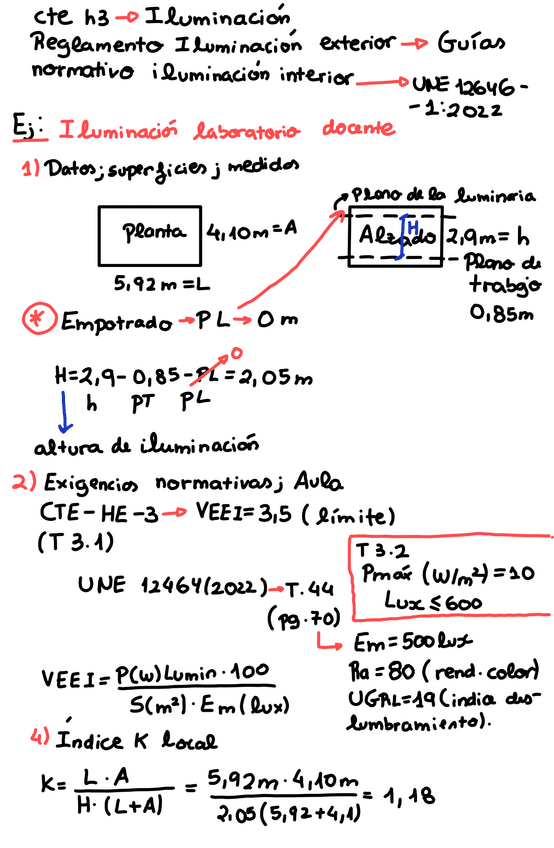 cte h3 → Iluminación
Reglamento Iluminación exterior → Guías
normativo iluminación interior → UNE 12646-
-1:2022
Ej: Iluminación laboratorio docente
1) Datos; superficies j medidos
Planta
4,10m = A
5,92 m = L
Plano de la luminaria
Alzado
H
2,9m = h
Plano de
trabajo
0,85m
* Empotrado → PL → 0 m
H=2,9-0,85-PL=2,05m
0
h PT PL
altura de iluminación
2) Exigencios normativas; Aula
CTE-HE-3 → VEEI=3,5 (límite)
(T 3.1)
T 3.2
Pmáx (W/m²)=10
Lux ≤600
UNE 12464(2022) → T.44
(pg.70)
Em=500lux
Ra=80 (rend.color)
UGRL=19 (india des-
lumbramiento).
VEEI = P(w)Lumin·100
S(m²)·Em(lux)
4) Índice K local
K= L·A / H·(L+A) = 5,92m·4,10m / 2.05(5,92+4,1) = 1,18